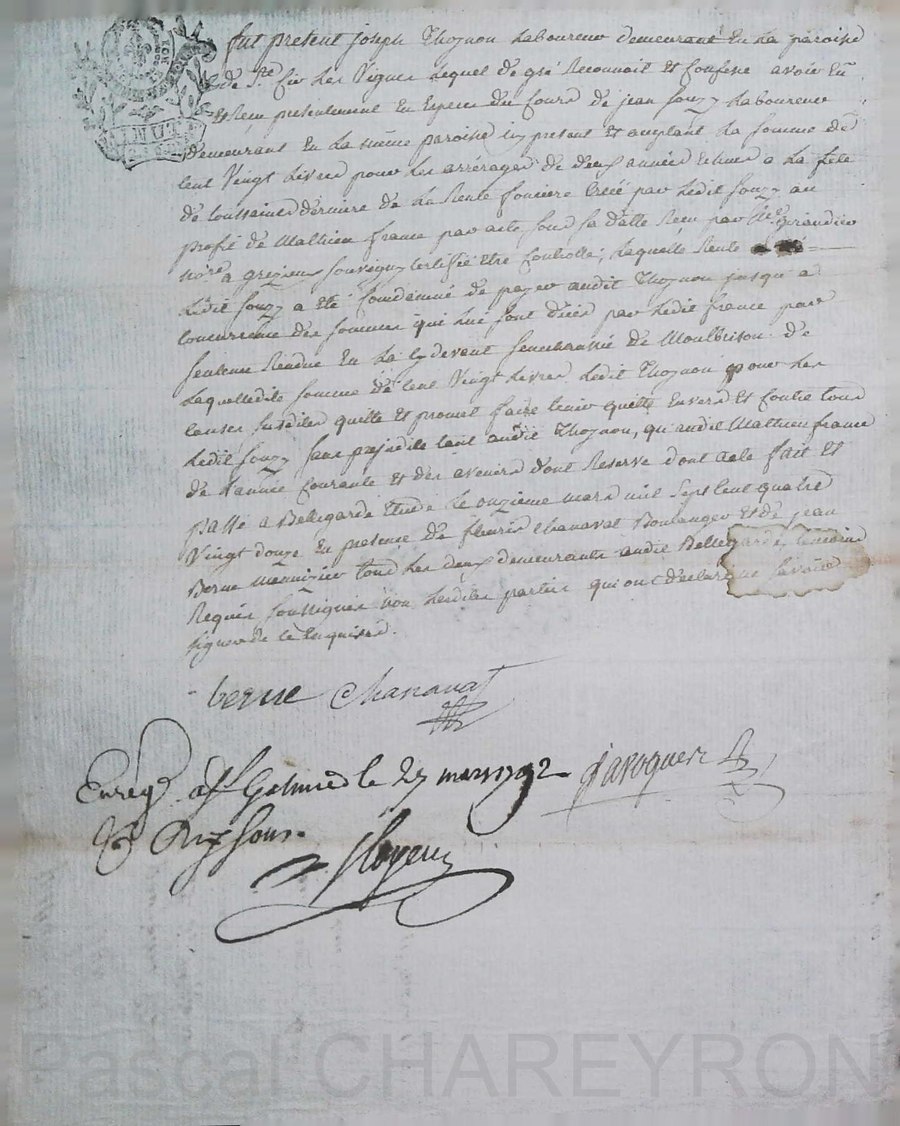 fut present joseph Thoynon Laboureur demeurant En La paroisse
de St Cir Les Vignes lequel de gré Reconnoit et Confesse avoir Eu
et Reçu presentement En Especes du Cours de jean Souzy Laboureur
demeurant En La même paroisse icy present et acceptant La somme de
Cent Vingt Livres pour Les arrérages de deux années Echues a La fête
de toussaint derniere de La Rente fonciere Créée par Ledit Souzy au
profit de Mathieu france par acte sous sa datte Reçu par Me Girandier
Nore a grezieux Souvigny certiffié être Controllé, laquelle Rente
Ledit Souzy a été Condamné de payer audit Thoynon jusqu'a
concurrence des sommes qui lui sont dües par Ledit france par
sentence Rendue En La cy devant senechaussée de Montbrison. de
Laquelle dite somme de Cent Vingt Livres Ledit Thoynon pour Les
causes susdites quitte Et promet faire tenir quitte Envers Et Contre tous
Ledit Souzy sans prejudice tant audit Thoynon, qu'audit Mathieu france
de L'année Courante et des avenirs dont Reserve dont acte fait et
passé a Bellegarde Etude Le onzieme mars mil sept Cent quatre
Vingt douze En presence de fleury Chanavat Boulanger et de jean
Berne Menuizier tous Les deux demeurants audit Bellegarde temoins
Requis soussignés non Lesdites parties qui ont déclaré ne savoir
signer de ce Enquises.
berne Chanavat
Enregé. a St Galmier le 27 mars 1792
Javoguer
R quinze sous.